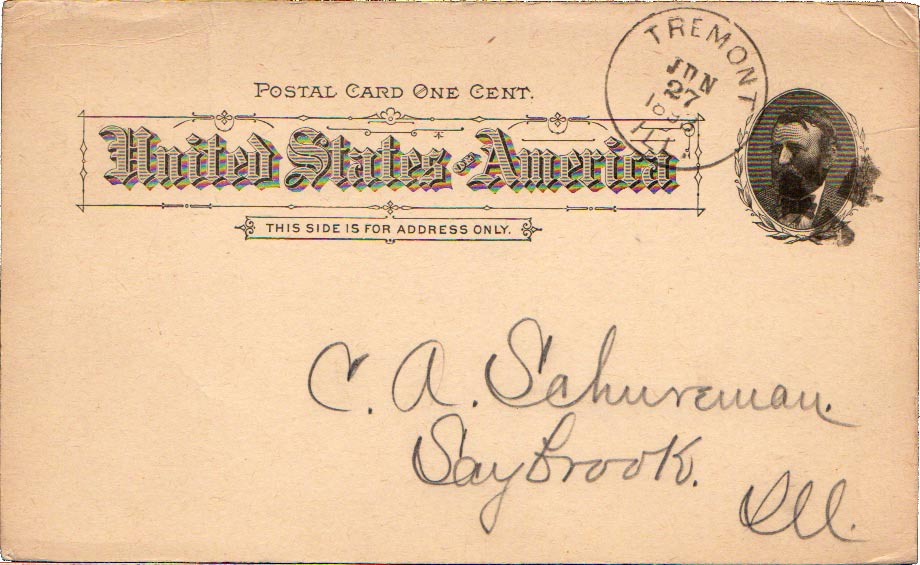 POSTAL CARD ONE CENT.
United States OF America
THIS SIDE IS FOR ADDRESS ONLY.
TREMONT
JUN
27
ILL.
C. A. Schureman.
Saybrook.
Ill.